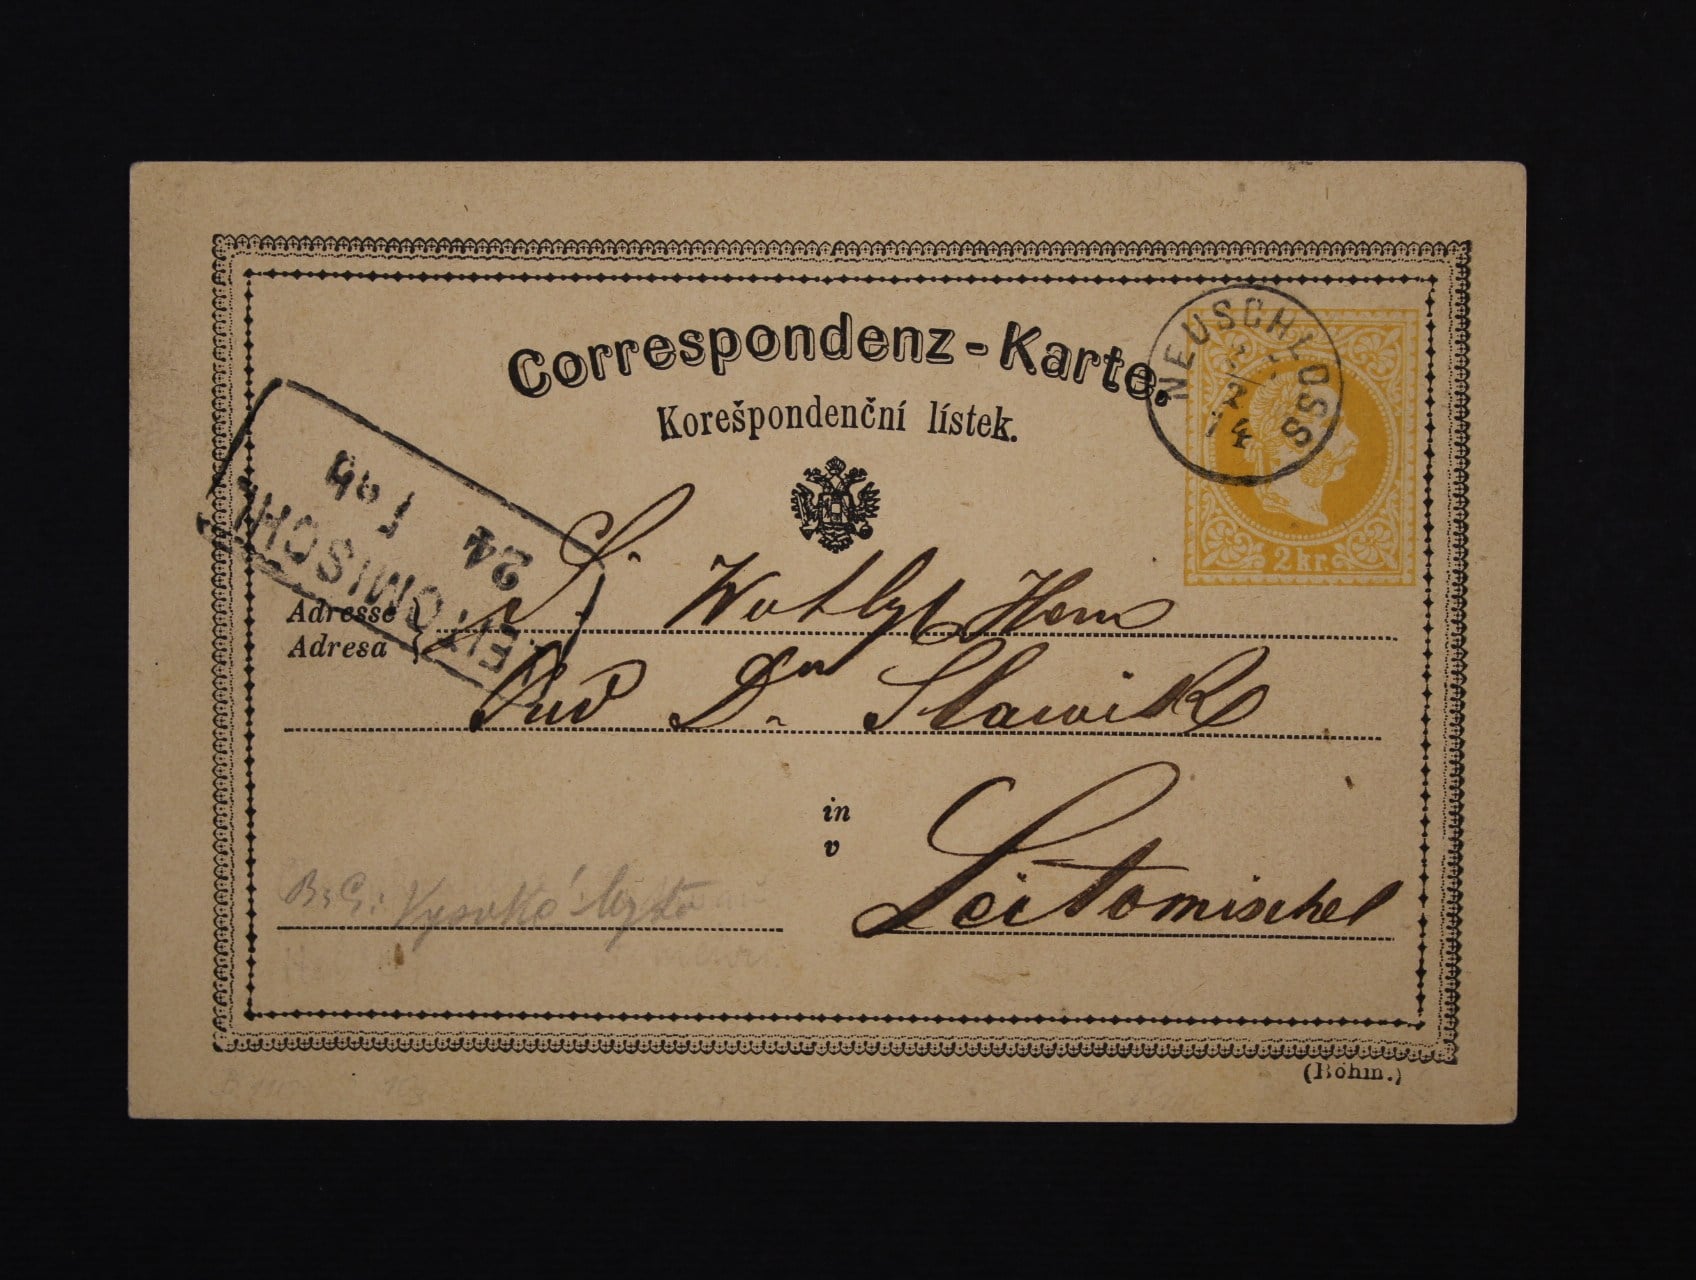 Correspondenz-Karte.
Korešpondenční lístek.
NEUSCHLOSS
2
74
2 kr.
LEITOMISCHL
24 Feb
Adresse
Adresa
Sr Herrn
Dr Slawik
in
v
Leitomischel
B.G: Vysoké Mýto
(Böhm.)